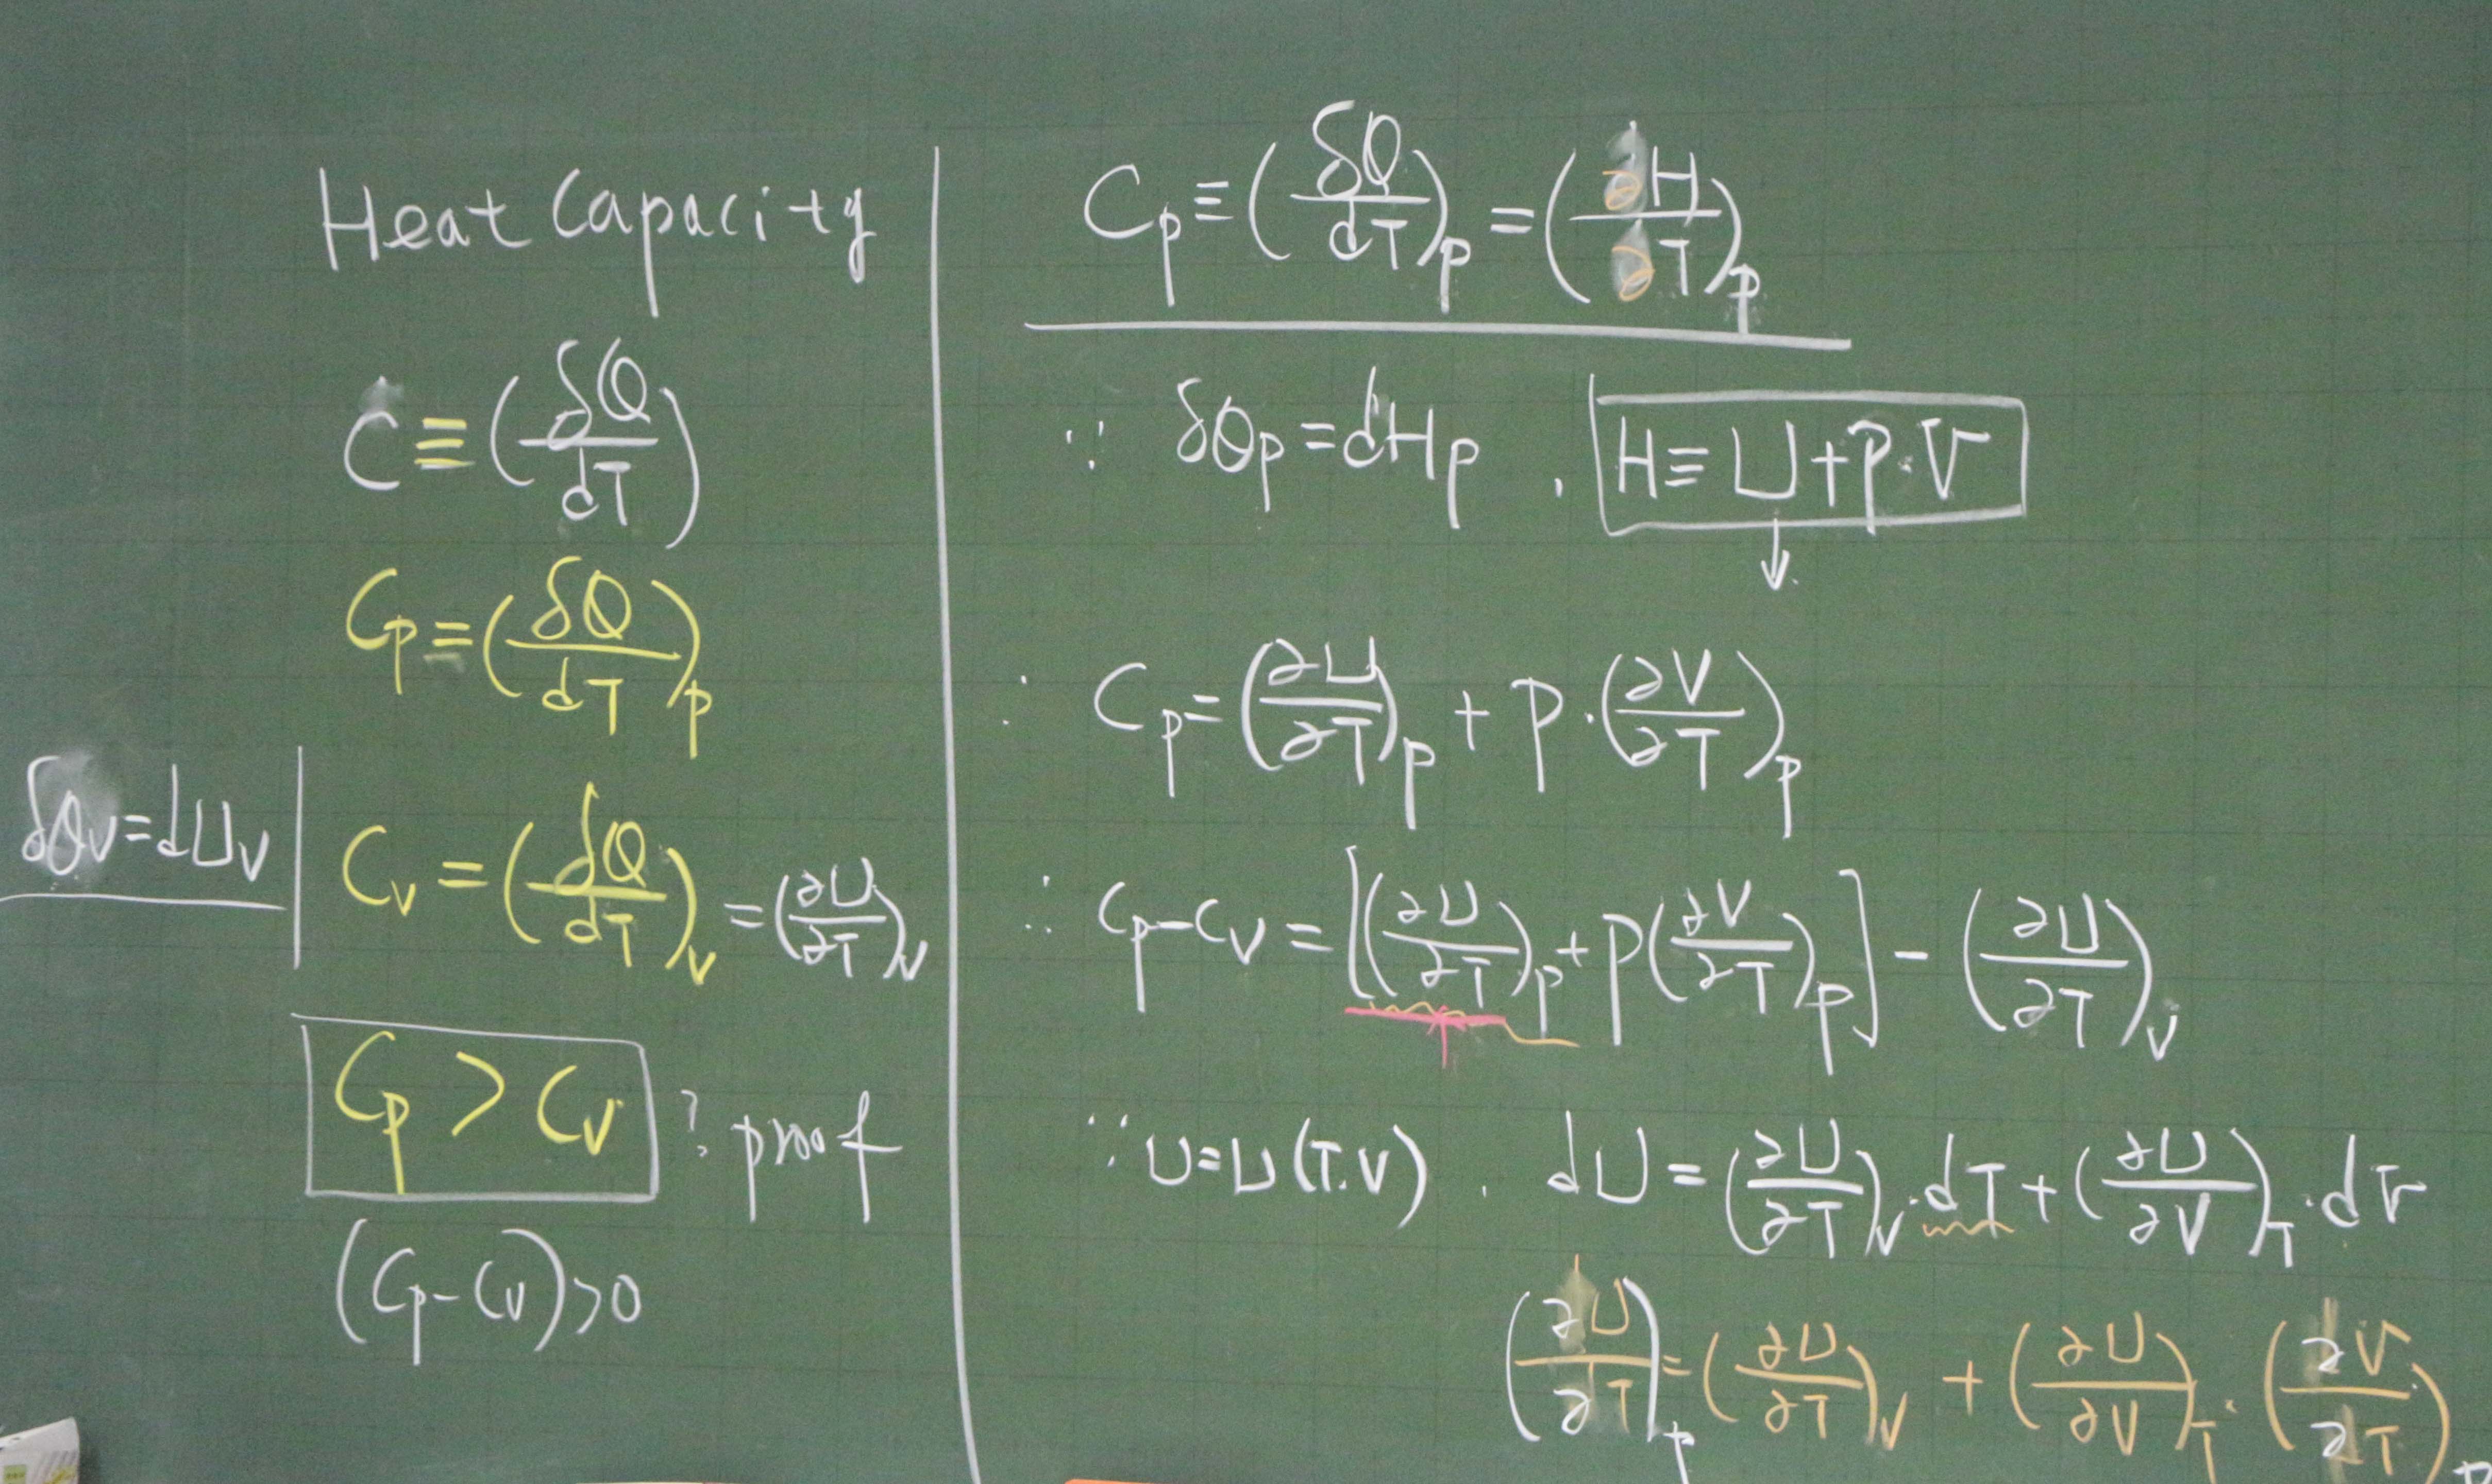 Heat Capacity
C ≡ (δQ/dT)
Cp ≡ (δQ/dT)p
δQv = dUv
Cv = (δQ/dT)v = (∂U/∂T)v
Cp > Cv ? proof
(Cp - Cv) > 0
Cp ≡ (δQ/dT)p = (∂H/∂T)p
∵ δQp = dHp . H ≡ U + P·V
↓
∴ Cp = (∂U/∂T)p + P·(∂V/∂T)p
∴ Cp - Cv = [(∂U/∂T)p + P(∂V/∂T)p] - (∂U/∂T)v
∵ U = U(T.V) . dU = (∂U/∂T)v·dT + (∂U/∂V)T·dV
(∂U/∂T)p = (∂U/∂T)v + (∂U/∂V)T·(∂V/∂T)p